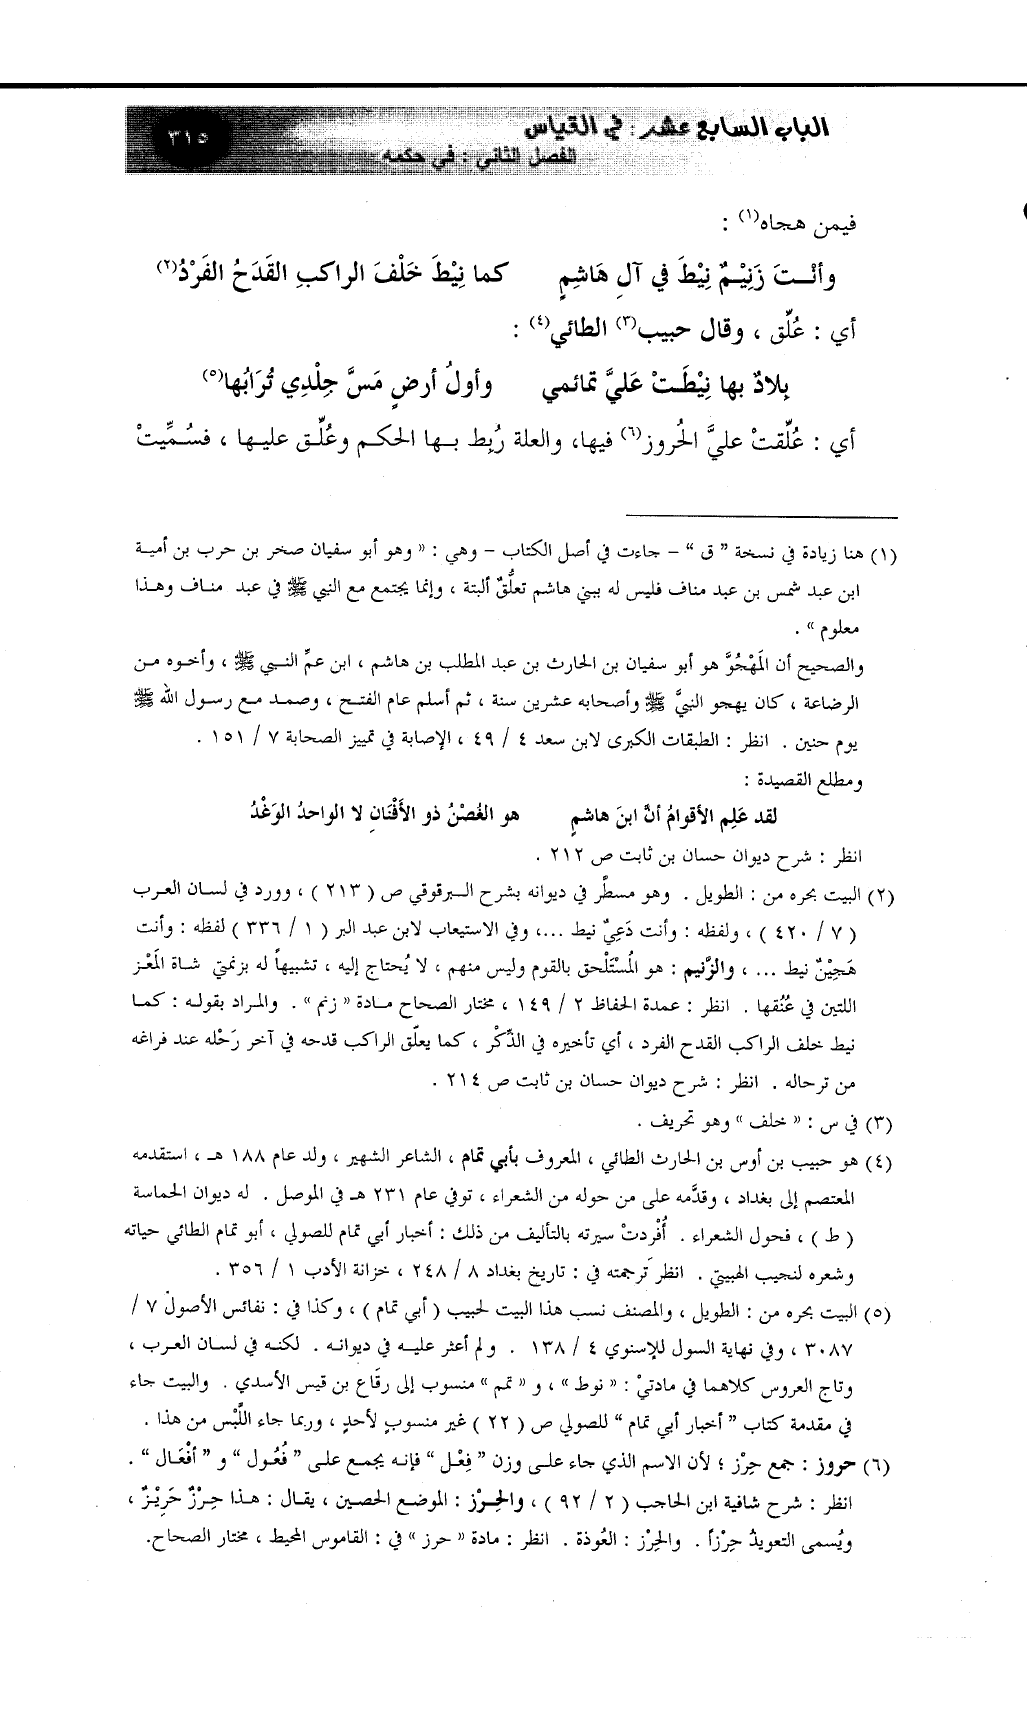 الباب السابع عشر : في القياس
الفصل الثاني : في حكمه
٣١٥
فيمن هجاه(١) :
وأنْــتَ زَنِيْــمٌ نِيْطَ في آلِ هَاشِمٍ كما نِيْطَ خَلْفَ الراكبِ القَدَحُ الفَرْدُ(٢)
أي : عُلِّق ، وقال حبيب(٣) الطائي(٤) :
بِلادٌ بها نِيْطَــتْ عَليَّ تمائمي وأولُ أرضٍ مَسَّ جِلْدِي تُرَابُها(٥)
أي : عُلِّقتْ عليَّ الحُروز(٦) فيها، والعلة رُبِط بــها الحكــم وعُلِّــق عليــها ، فسُمِّيــتْ
(١) هنا زيادة في نسخة ” ق “ – جاءت في أصل الكتاب – وهي : « وهو أبو سفيان صخر بن حرب بن أميــة
ابن عبد شمس بن عبد مناف فليس له ببني هاشم تعلُّقٌ ألبتة ، وإنما يجتمع مع النبي ﷺ في عبد منــاف وهــذا
معلوم » .
والصحيح أن المَهْجُوَّ هو أبو سفيان بن الحارث بن عبد المطلب بن هاشم ، ابن عمِّ النــبي ﷺ ، وأخــوه مــن
الرضاعة ، كان يهجو النبيَّ ﷺ وأصحابه عشرين سنة ، ثم أسلم عام الفتــح ، وصمــد مــع رســول الله ﷺ
يوم حنين . انظر : الطبقات الكبرى لابن سعد ٤ / ٤٩ ، الإصابة في تمييز الصحابة ٧ / ١٥١ .
ومطلع القصيدة :
لقد عَلِم الأقوامُ أنَّ ابنَ هاشمٍ هو الغُصْنُ ذو الأَفْنَانِ لا الواحدُ الوَغْدُ
انظر : شرح ديوان حسان بن ثابت ص ٢١٢ .
(٢) البيت بحره من : الطويل . وهو مسطَّر في ديوانه بشرح الــبرقوقي ص ( ٢١٣ ) ، وورد في لســان العــرب
( ٧ / ٤٢٠ ) ، ولفظه : وأنت دَعِيٌّ نيط ...، وفي الاستيعاب لابن عبد البر ( ١ / ٣٣٦ ) لفظه : وأنت
هَجِيْنٌ نيط ... ، والزَّنيم : هو المُسْتَلْحق بالقوم وليس منهم ، لا يُحتاج إليه ، تشبيهاً له بزنمتي شــاة المَعْــز
اللتين في عُنُقها . انظر : عمدة الحفاظ ٢ / ١٤٩ ، مختار الصحاح مــادة « زنم » . والمــراد بقولــه : كمــا
نيط خلف الراكب القدح الفرد ، أي تأخيره في الذِّكْر ، كما يعلّق الراكب قدحه في آخر رَحْله عند فراغه
من ترحاله . انظر : شرح ديوان حسان بن ثابت ص ٢١٤ .
(٣) في س : « خلف » وهو تحريف .
(٤) هو حبيب بن أوس بن الحارث الطائي ، المعروف بأبي تمام ، الشاعر الشهير ، ولد عام ١٨٨ هــ ، استقدمه
المعتصم إلى بغداد ، وقدَّمه على من حوله من الشعراء ، توفي عام ٢٣١ هــ في الموصل . له ديوان الحماسة
( ط ) ، فحول الشعراء . أُفْردتْ سيرته بالتأليف من ذلك : أخبار أبي تمام للصولي ، أبو تمام الطائي حياته
وشعره لنجيب البهبيتي . انظر ترجمته في : تاريخ بغداد ٨ / ٢٤٨ ، خزانة الأدب ١ / ٣٥٦ .
(٥) البيت بحره من : الطويل ، والمصنف نسب هذا البيت لحبيب ( أبي تمام ) ، وكذا في : نفائس الأصول ٧ /
٣٠٨٧ ، وفي نهاية السول للإسنوي ٤ / ١٣٨ . ولم أعثر عليــه في ديوانــه . لكنــه في لســان العــرب ،
وتاج العروس كلاهما في مادتيْ : « نوط » ، و « تمم » منسوب إلى رقَاع بن قيس الأسدي . والبيت جاء
في مقدمة كتاب ” أخبار أبي تمام “ للصولي ص ( ٢٢ ) غير منسوبٍ لأحدٍ ، وربما جاء اللَّبْس من هذا .
(٦) حروز : جمع حِرْز ؛ لأن الاسم الذي جاء علــى وزن ” فِعْل “ فإنــه يجمع علــى ” فُعُول “ و ” أفْعَال “ .
انظر : شرح شافية ابن الحاجب ( ٢ / ٩٢ ) ، والحِــرْز : الموضع الحصين ، يقال : هــذا حِــرْزٌ حَرِيْــزٌ ،
ويُسمى التعويذُ حِرْزاً . والحِرْز : العُوذة . انظر : مادة « حرز » في : القاموس المحيط ، مختار الصحاح.